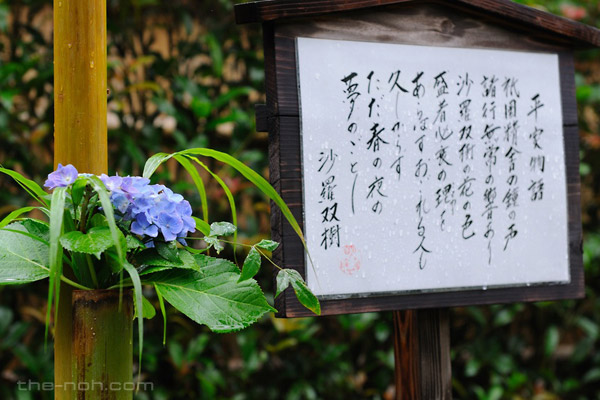 平家物語
祇園精舎の鐘の声
諸行無常の響あり
沙羅双樹の花の色
盛者必衰の理を
あらはす おごれる人も
久しからず
たゞ春の夜の
夢のごとし
沙羅双樹
the-noh.com